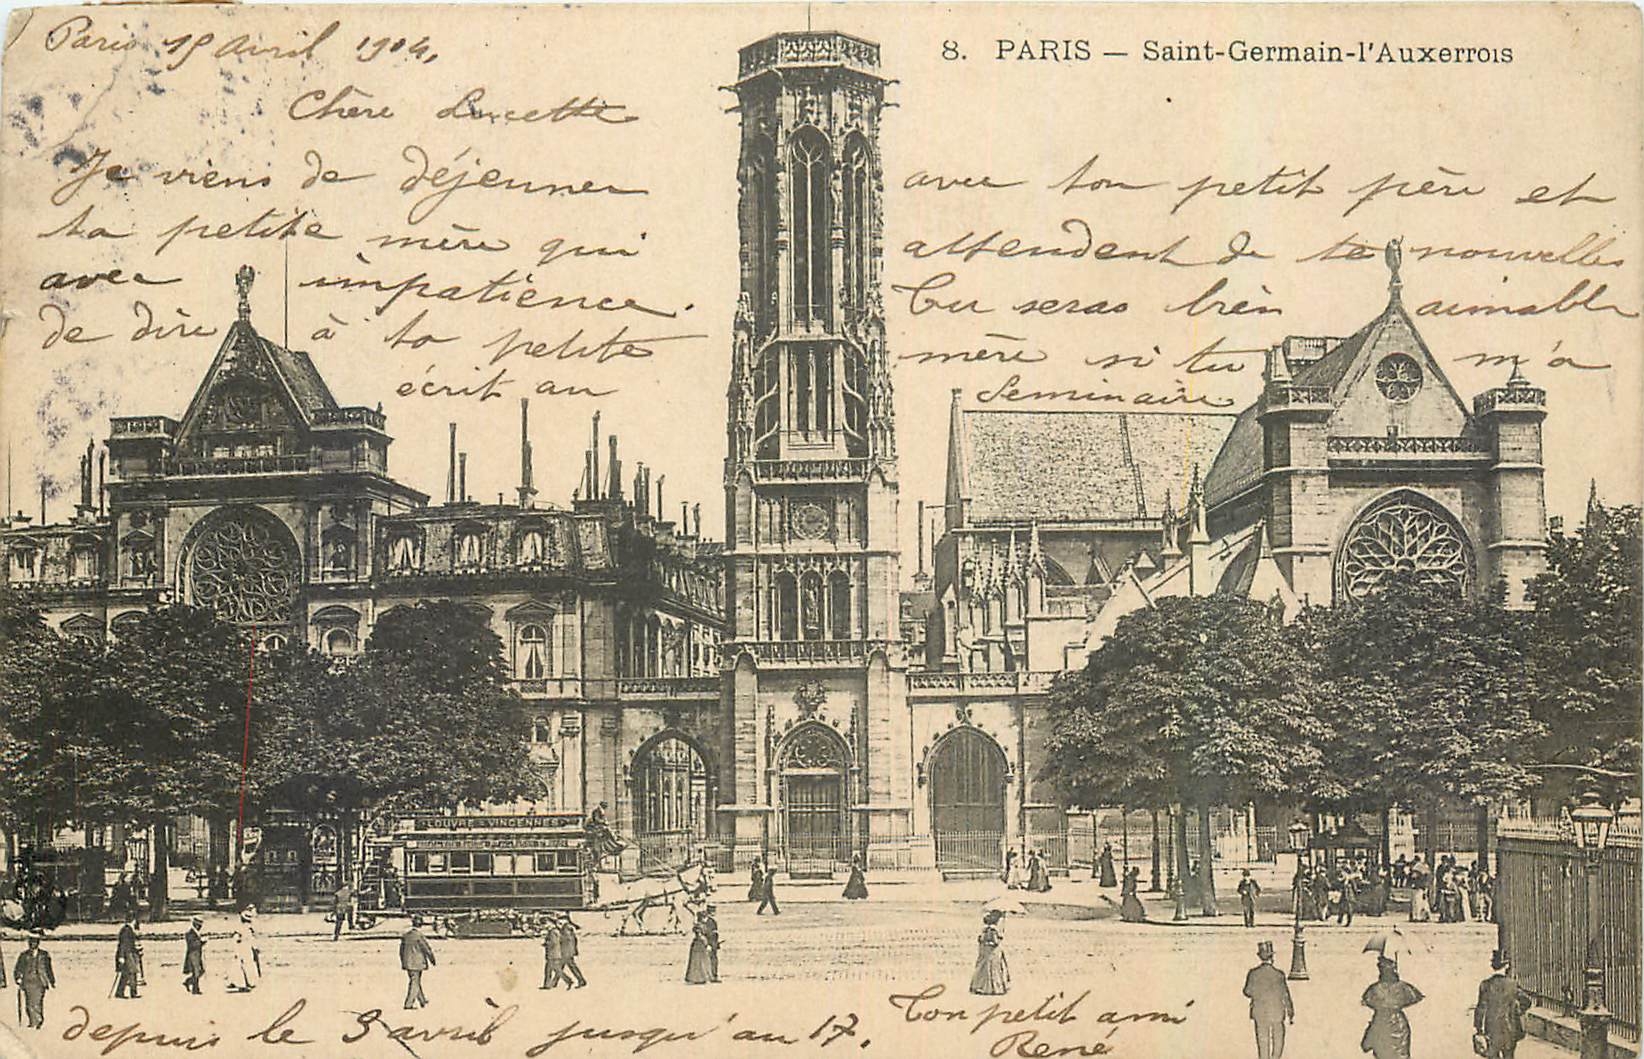 Paris 19 avril 1904,
8. PARIS — Saint-Germain-l'Auxerrois
Chère Lucette
Je viens de déjeuner avec ton petit père et
ta petite mère qui attendent de te nouvelles
avec impatience. Tu seras bien aimable
de dire à ta petite mère si tu m'a
écrit au Seminaire
LOUVRE - VINCENNES
depuis le 3 avril jusqu'au 17.
Ton petit ami
René